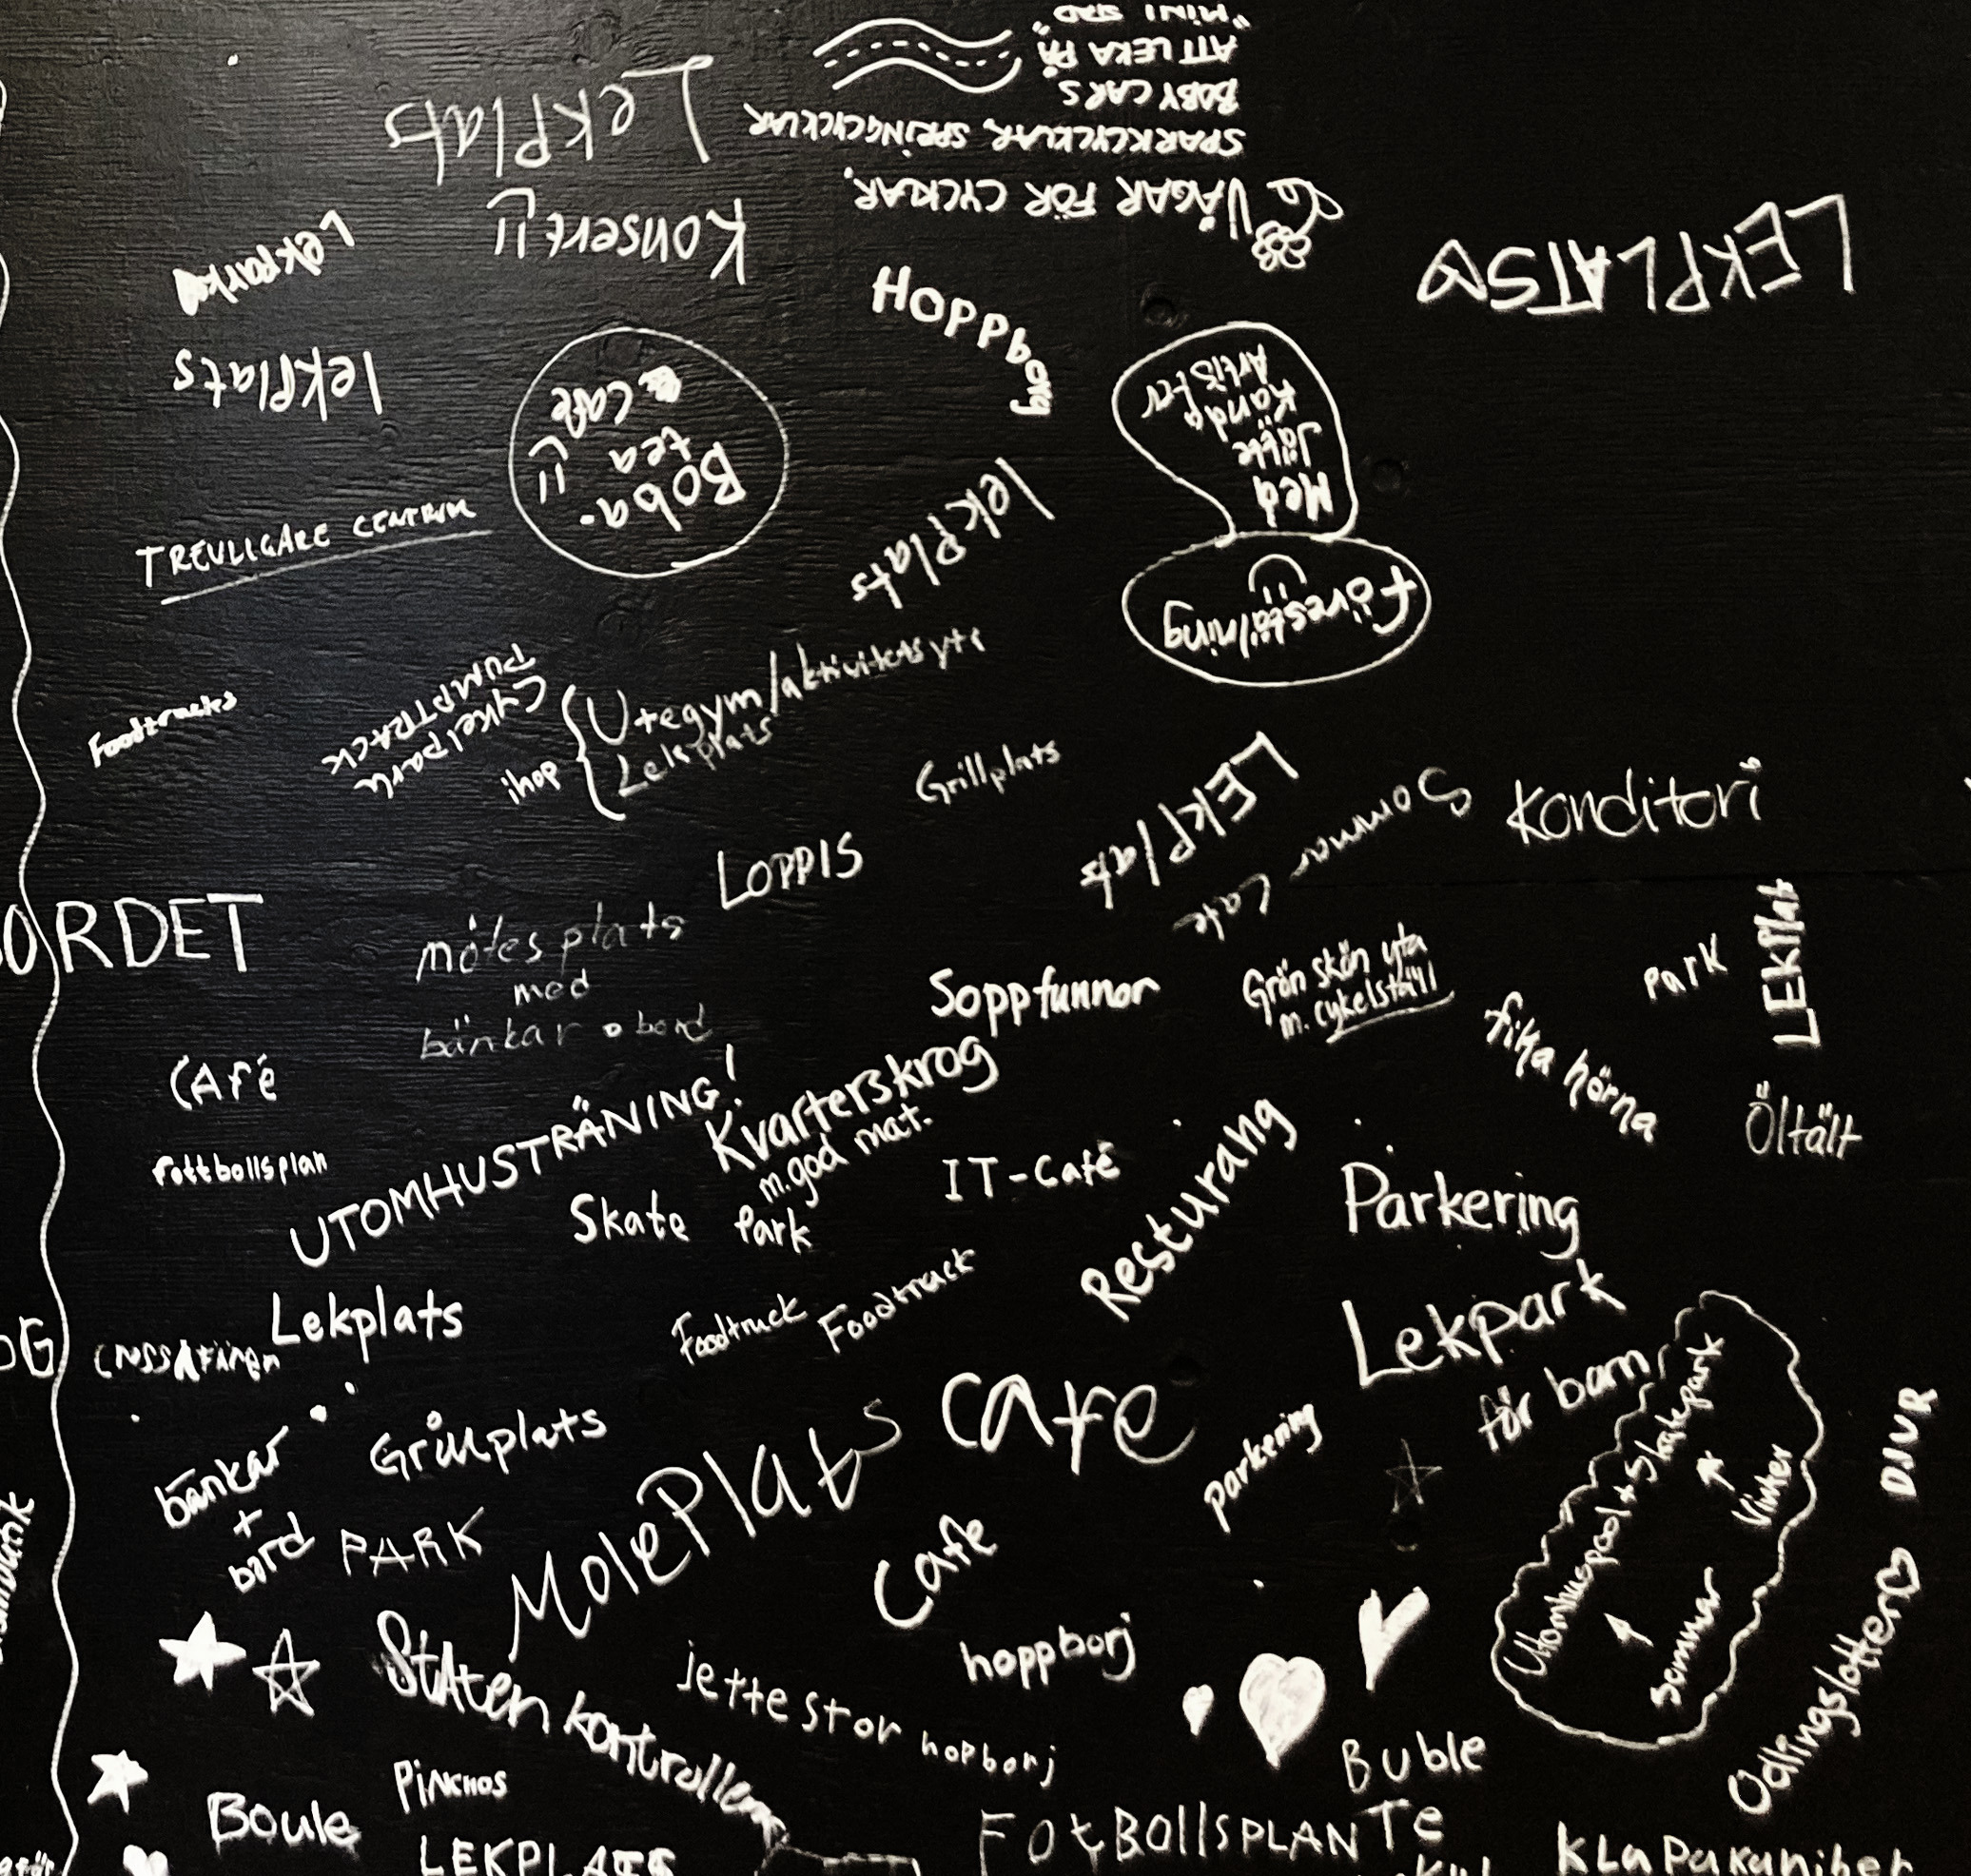 "MINI STAD"
ATT LEKA PÅ
BABYCARS
SPARKCYCKLAR, SPRINGCYCKLAR
VÄGAR FÖR CYCKLAR,
LekPlats
Konsert
LEKPLATS
Lekparken
HOPPborg
lekPlats
Boba-
tea
café
Föreställning
Med
Jätte
Kända
Artister
TREVLIGARE CENTRUM
lekPlats
Foodtrucks
Cykelpark
PUMPTRACK
ihop
Utegym/aktivitetsyta
Lekplats
Grillplats
LEKPlats
Sommar Cafe
Konditori
LOPPIS
ORDET
mötesplats
med
bänkar o bord
Soppfunnor
Grön skön yta
m. cykelställ
Park
LEKPlat
fika hörna
Öltält
CAfé
fottbollsplan
UTOMHUSTRÄNING!
Kvarterskrog
m.god mat.
Skate Park
IT-Café
Resturang
Parkering
Lekplats
Foodtruck
Foodtruck
Lekpark
för barn
OG
Grillplats
bänkar
+
bord
PARK
MotePlats
cafe
parkering
Utomhuspool + Skridskpark
Vinter
Sommar
DJUR
Odlingslotter
Cafe
hoppborj
Staten kontrollerar
jette stor hopborj
Buble
Te
Boule
PINCHOS
LEKPLATS
FotBollsPLAN